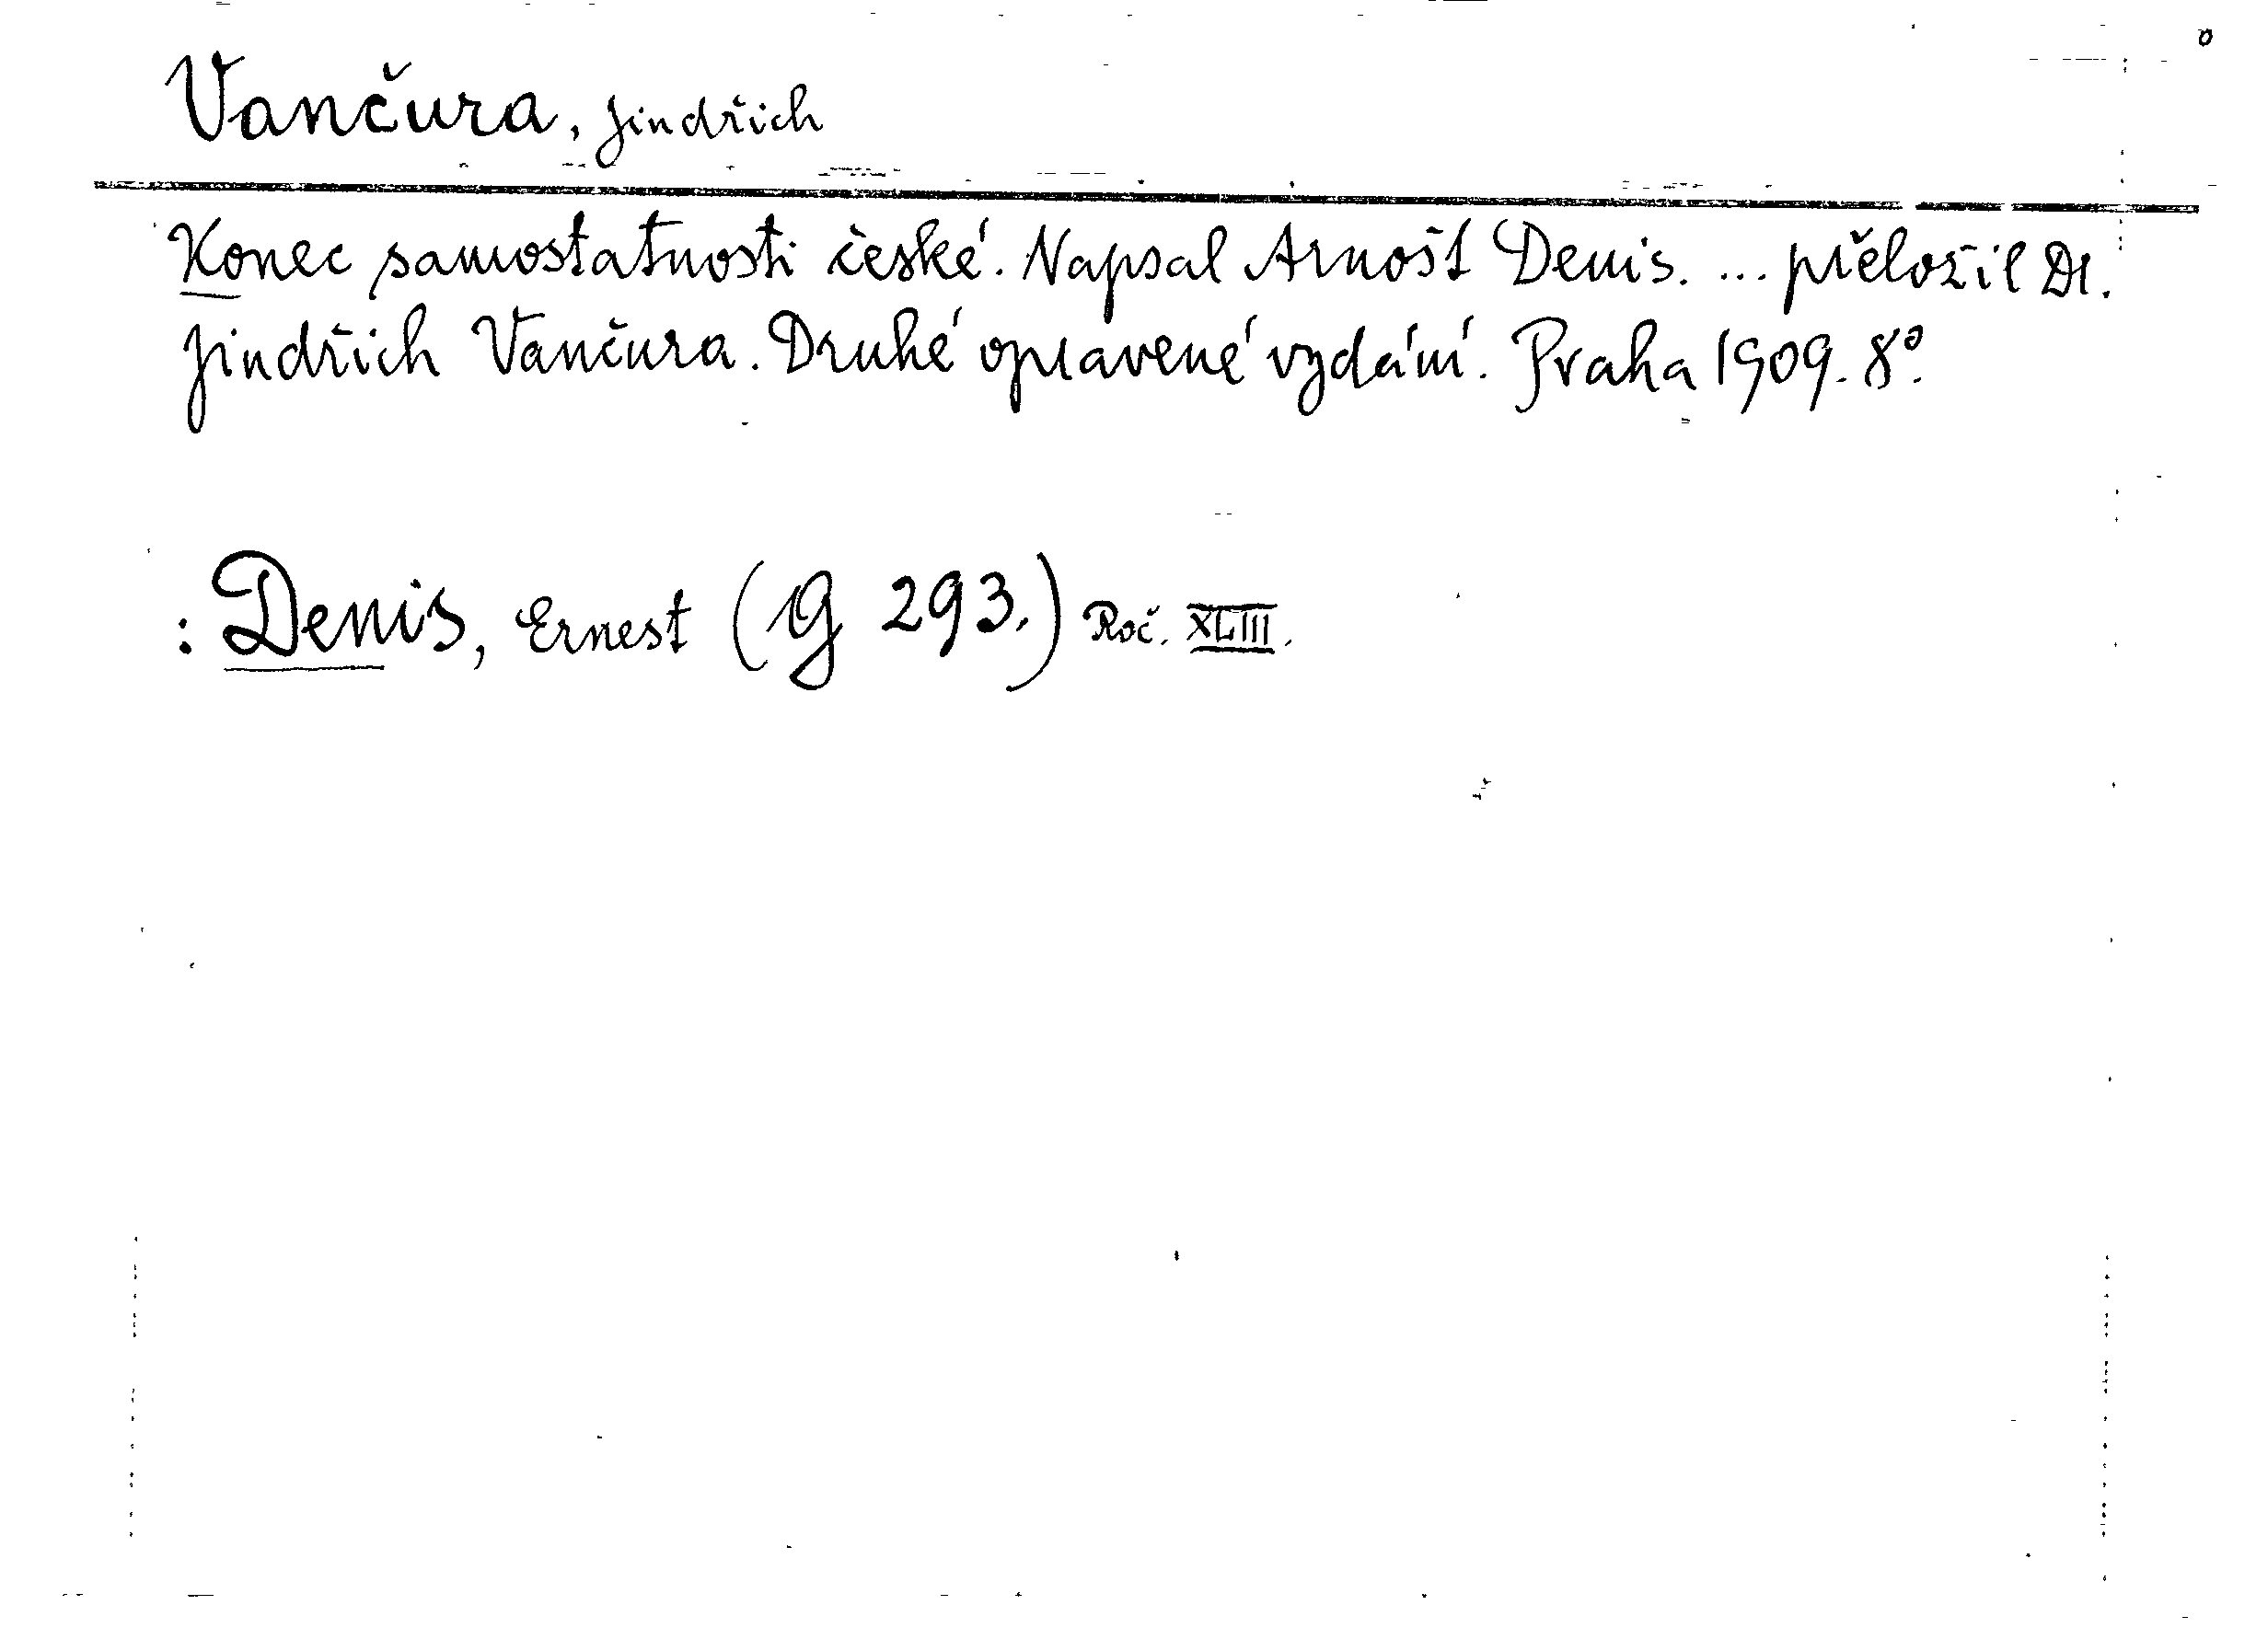 Vančura, Jindřich
Konec samostatnosti české. Napsal Arnošt Denis. ... přeložil Dr.
Jindřich Vančura. Druhé opravené vydání. Praha 1909. 8°.
: Denis, Ernest (G 293.) Roč. XLIII.